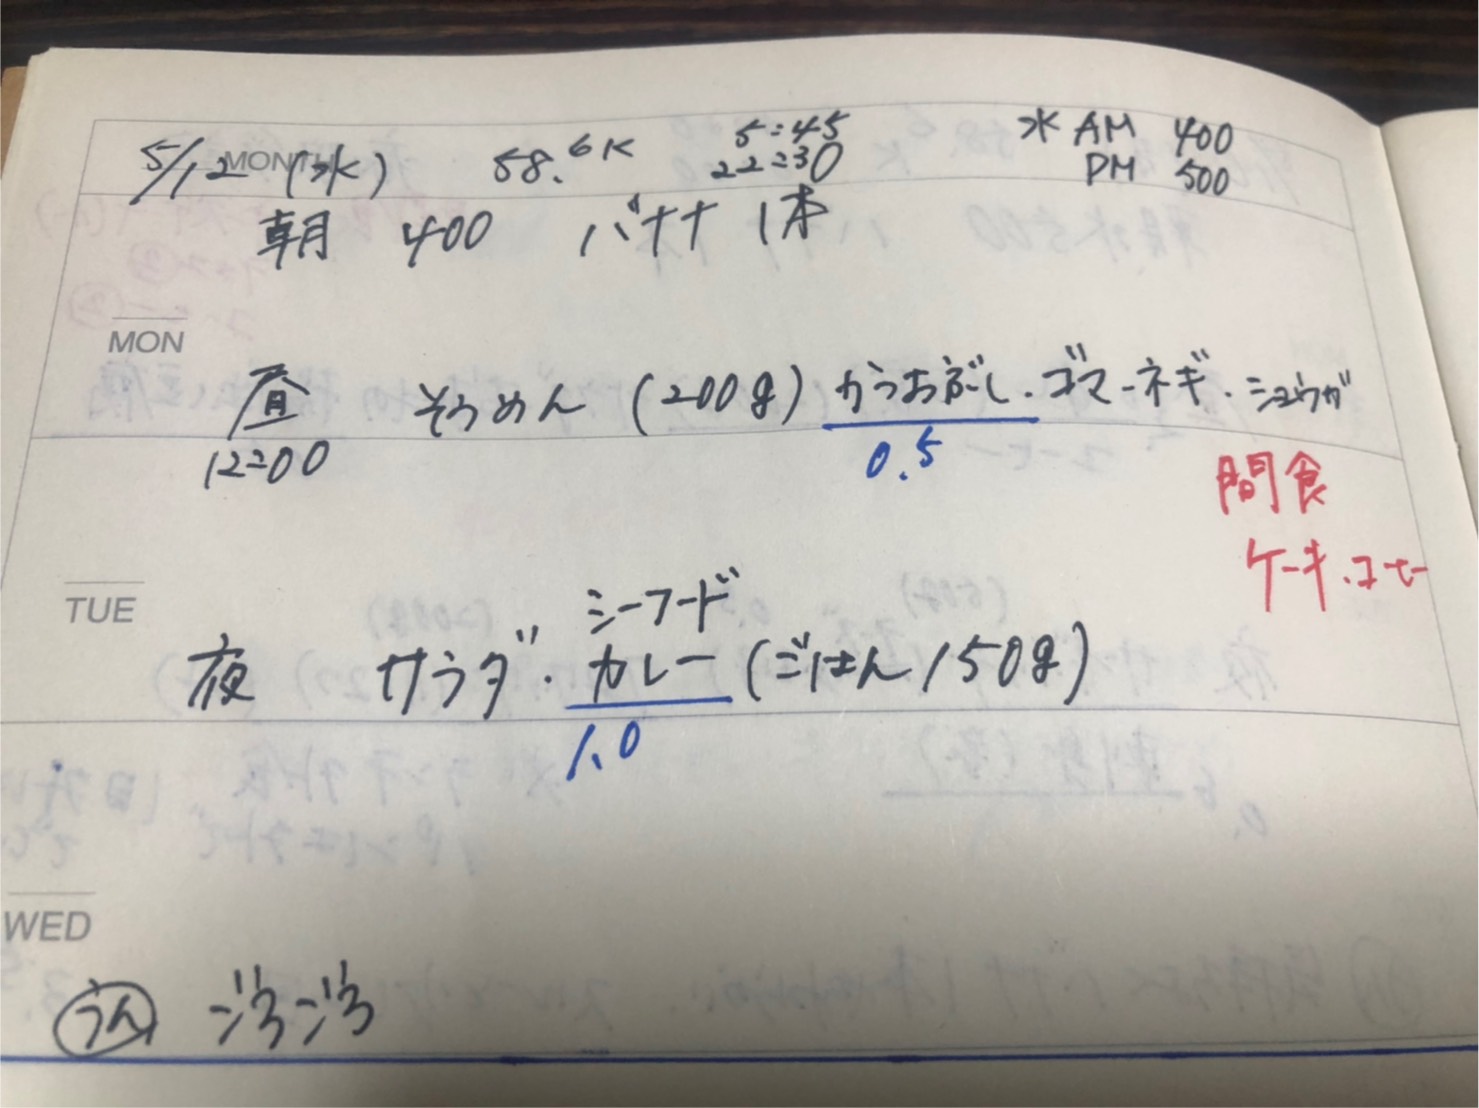 5/12 (水) 58.6K 5:45 水 AM 400
22:30 PM 500
MON
朝 400 バナナ 1本
MON
昼 そうめん (200g) かつおぶし・ゴマ・ネギ・ショウガ
12:00 0.5
間食
ケーキ・コーヒー
TUE
シーフード
夜 サラダ・カレー (ごはん150g)
1.0
WED
うん ゴロゴロ